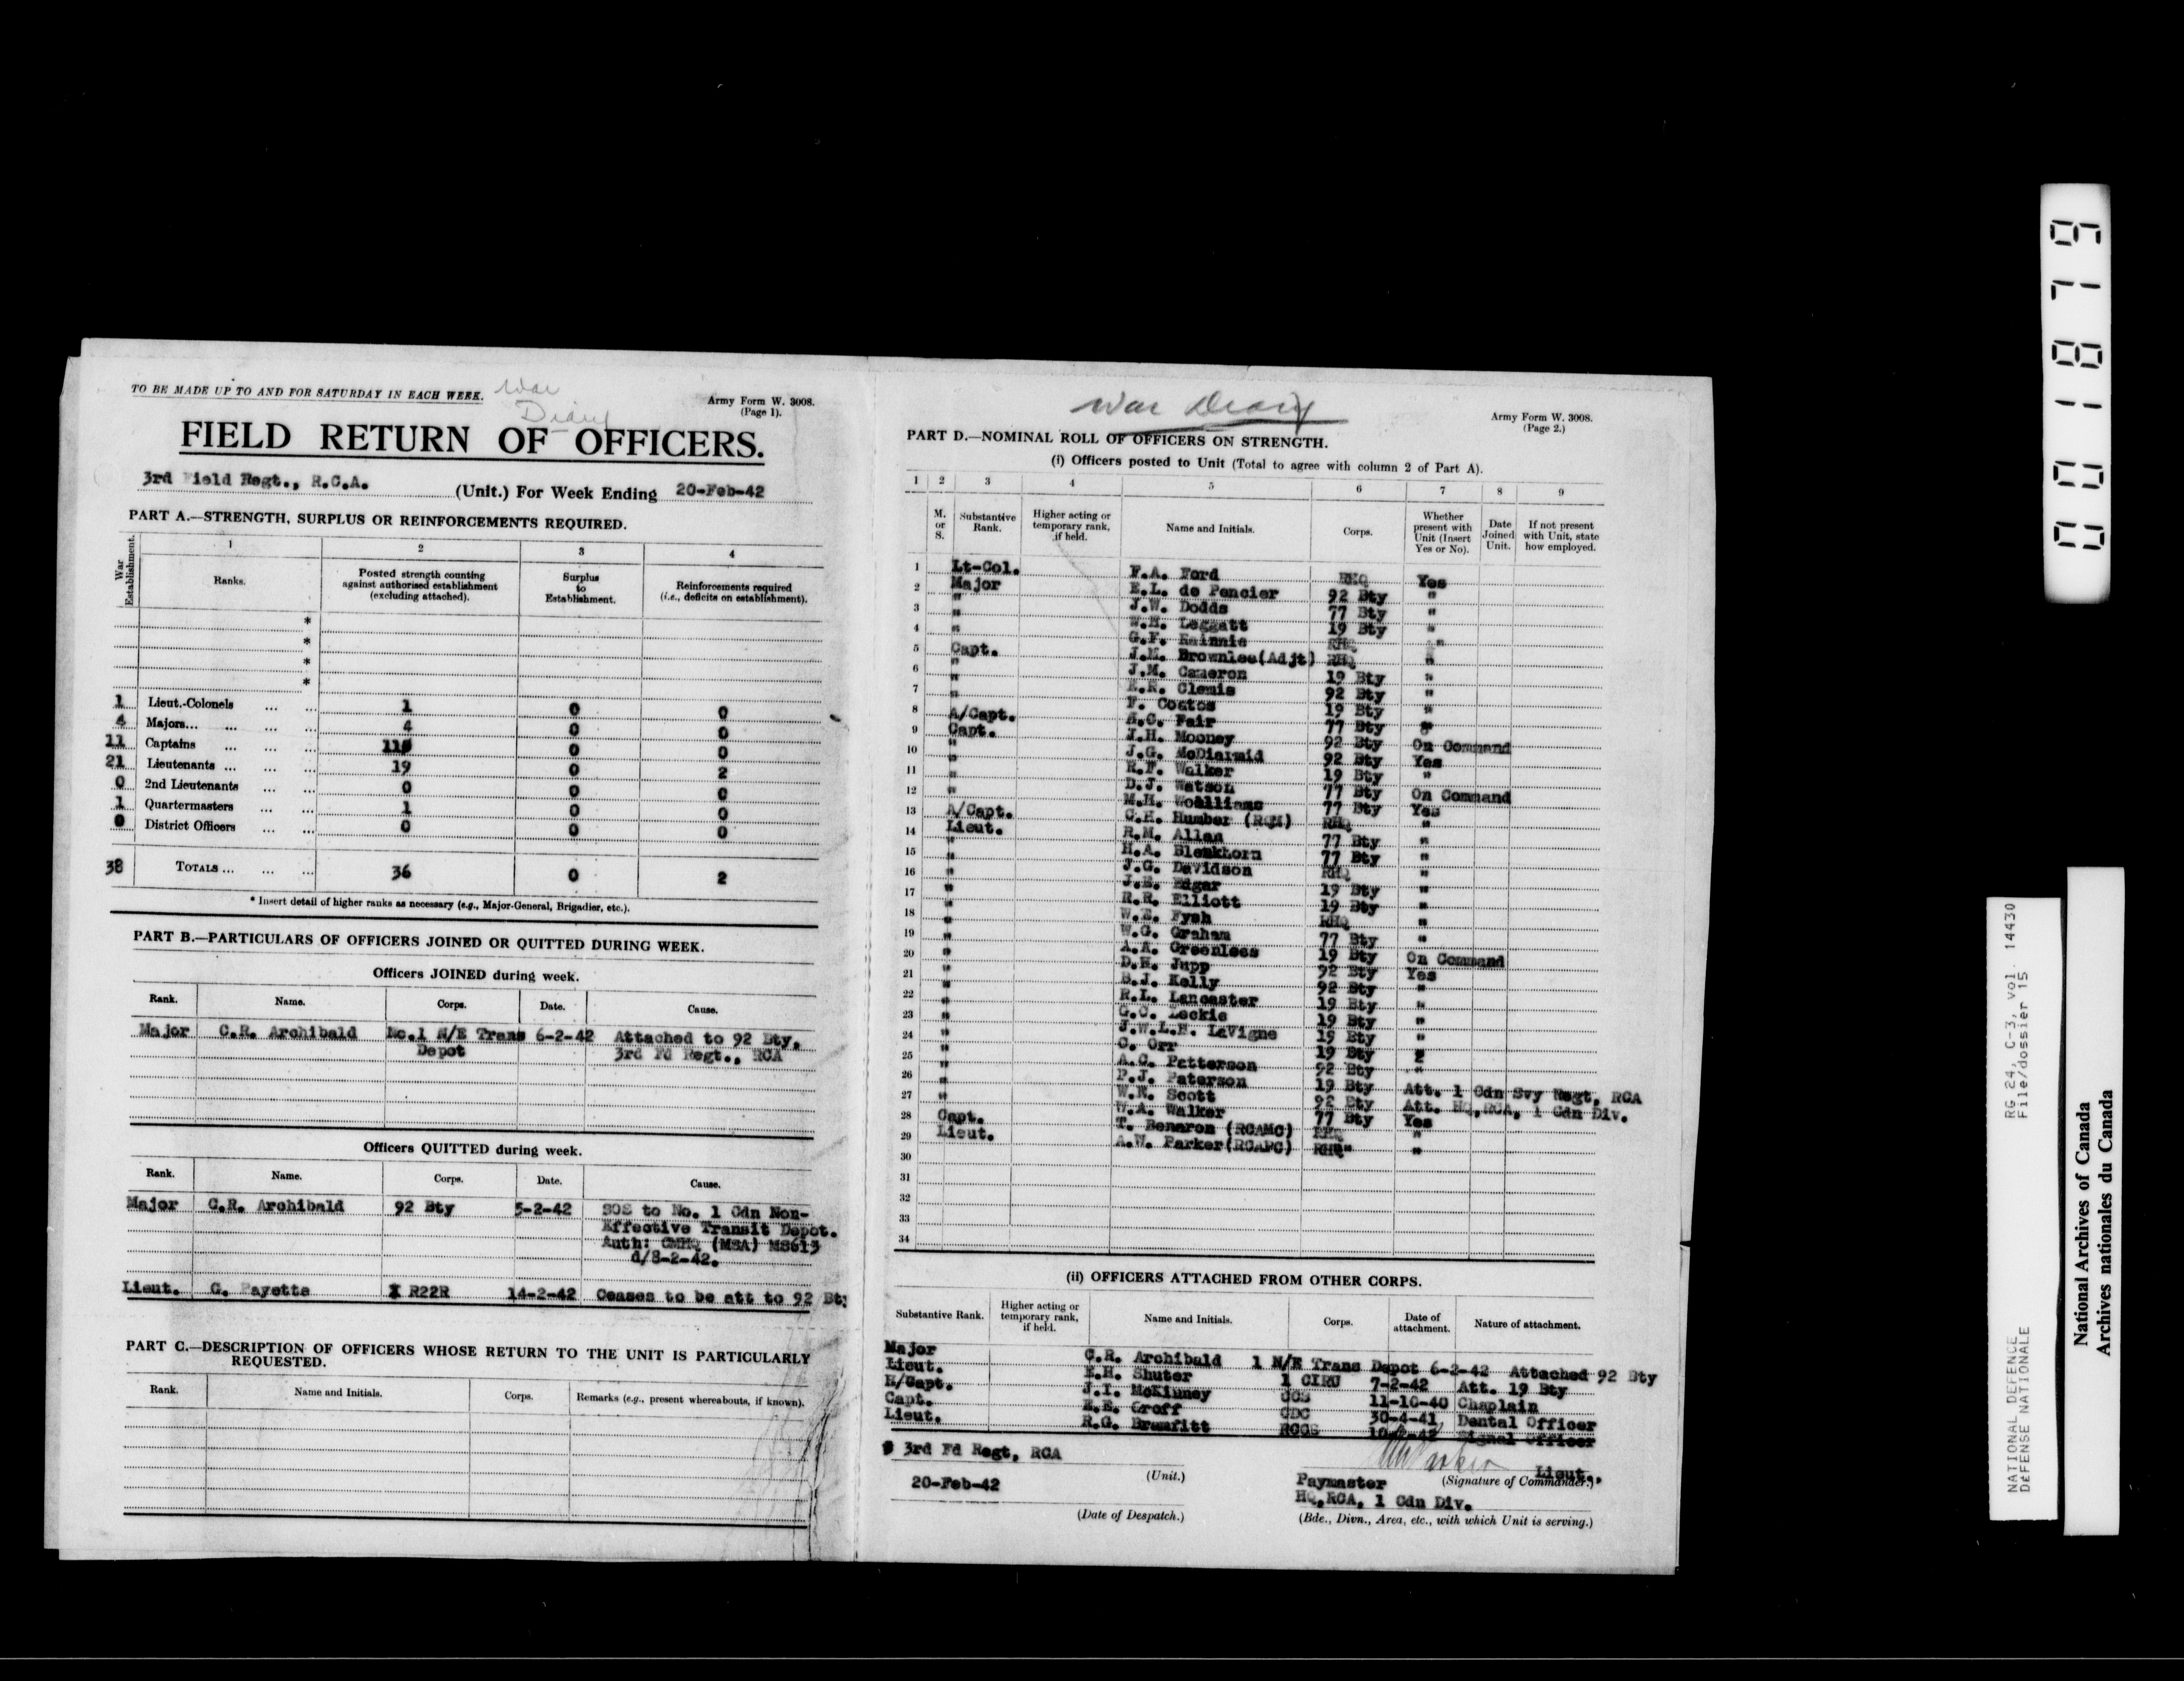 TO BE MADE UP TO AND FOR SATURDAY IN EACH WEEK. War Diary
Army Form W. 3008.
(Page 1).
FIELD RETURN OF OFFICERS.
3rd Field Regt., R.C.A. (Unit.) For Week Ending 20-Feb-42
PART A.—STRENGTH, SURPLUS OR REINFORCEMENTS REQUIRED.
War Establishment.
1 2 3 4
Ranks. Posted strength counting against authorised establishment (excluding attached). Surplus to Establishment. Reinforcements required (i.e., deficits on establishment).
*
*
*
*
1 Lieut.-Colonels ... ... 1 0 0
4 Majors... ... ... ... 4 0 0
11 Captains ... ... ... 11 0 0
21 Lieutenants ... ... ... 19 0 2
0 2nd Lieutenants ... ... 0 0 0
1 Quartermasters ... ... 1 0 0
0 District Officers ... ... 0 0 0
38 TOTALS ... ... ... 36 0 2
* Insert detail of higher ranks as necessary (e.g., Major-General, Brigadier, etc.).
PART B.—PARTICULARS OF OFFICERS JOINED OR QUITTED DURING WEEK.
Officers JOINED during week.
Rank. Name. Corps. Date. Cause.
Major C.R. Archibald No.1 N/E Trans 6-2-42 Attached to 92 Bty,
Depot 3rd Fd Regt., RCA
Officers QUITTED during week.
Rank. Name. Corps. Date. Cause.
Major C.R. Archibald 92 Bty 5-2-42 SOS to No. 1 Cdn Non-
Effective Transit Depot.
Auth: CMHQ (MSA) MS613
d/8-2-42.
Lieut. G. Payette R22R 14-2-42 Ceases to be att to 92 Bty
PART C.—DESCRIPTION OF OFFICERS WHOSE RETURN TO THE UNIT IS PARTICULARLY
REQUESTED.
Rank. Name and Initials. Corps. Remarks (e.g., present whereabouts, if known).
War Diary
Army Form W. 3008.
(Page 2.)
PART D.—NOMINAL ROLL OF OFFICERS ON STRENGTH.
(i) Officers posted to Unit (Total to agree with column 2 of Part A).
1 2 3 4 5 6 7 8 9
M. or S. Substantive Rank. Higher acting or temporary rank, if held. Name and Initials. Corps. Whether present with Unit (Insert Yes or No). Date Joined Unit. If not present with Unit, state how employed.
1 Lt-Col. F.A. Ford RHQ Yes
2 Major E.L. de Pencier 92 Bty "
3 " J.W. Dodds 77 Bty "
4 " W.H. Leggatt 19 Bty "
" G.F. Rainnie RHQ "
5 Capt. J.M. Brownlee(Adjt) RHQ "
6 " J.M. Cameron 19 Bty "
7 " Clemis 92 Bty "
8 " F. Coates 19 Bty "
A/Capt. A.C. Fair 77 Bty "
9 Capt. J.H. Mooney 92 Bty On Command
10 " J.G. McDiarmid 92 Bty Yes
11 " R.F. Walker 19 Bty "
12 " D.J. Watson 77 Bty On Command
M.H. 77 Bty Yes
13 A/Capt. C.H. Humber (RQM) RHQ "
14 Lieut. R.M. Allan 77 Bty "
15 " H.A. Blenkhorn 77 Bty "
16 " J.G. Davidson RHQ "
17 " J.E. Edgar 19 Bty "
18 " R.R. Elliott 19 Bty "
" W.E. Fysh RHQ "
19 " W.G. Graham 77 Bty "
20 " A.A. Greenlees 19 Bty On Command
21 " D.E. Jupp 92 Bty Yes
22 " B.J. Kelly 92 Bty "
" R.L. Lancaster 19 Bty "
23 " G.C. Leckie 19 Bty "
24 " J.W.L.H. LaVigne 19 Bty "
25 " C. Orr 19 Bty "
26 " A.C. Patterson 92 Bty "
" P.J. Paterson 19 Bty Att. 1 Cdn Svy Regt, RCA
27 " W.N. Scott 92 Bty Att. HQ,RCA, 1 Cdn Div.
28 " W.A. Walker 77 Bty Yes
29 Capt. T. Benaron (RCAMC) RHQ "
Lieut. A.W. Parker(RCAPC) RHQ "
30
31
32
33
34
(ii) OFFICERS ATTACHED FROM OTHER CORPS.
Substantive Rank. Higher acting or temporary rank, if held. Name and Initials. Corps. Date of attachment. Nature of attachment.
Major C.R. Archibald 1 N/E Trans Depot 6-2-42 Attached 92 Bty
Lieut. E.H. Shuter 1 CIRU 7-2-42 Att. 19 Bty
H/Capt. J.I. McKinney CCS 11-10-40 Chaplain
Capt. E.E. Groff CDC 30-4-41 Dental Officer
Lieut. R.G. Bramfitt RCCS Signal Officer
3rd Fd Regt, RCA (Unit.)
Lieut.
Paymaster (Signature of Commander.)
20-Feb-42 HQ,RCA, 1 Cdn Div.
(Date of Despatch.) (Bde., Divn., Area, etc., with which Unit is serving.)
001879
NATIONAL DEFENCE RG 24, C-3, vol. 14430
DÉFENSE NATIONALE File/dossier 15
National Archives of Canada
Archives nationales du Canada